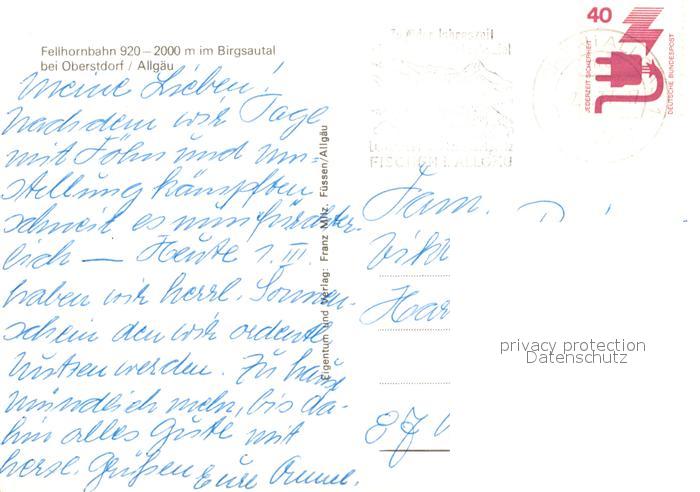 Fellhornbahn 920 – 2000 m im Birgsautal
bei Oberstdorf / Allgäu
Meine Lieben!
Nachdem wir Tage
mit Föhn und Um-
stellung kämpften
schneit es nun fürchter-
lich — Heute 1. III.
haben wir herrl. Sonnen-
schein den wir ordentl.
nützen werden. Zu Haus
mündlich mehr, bis da-
hin alles Gute mit
herzl. Grüßen Eure
Eigentum und Verlag: Franz Milz, Füssen/Allgäu
FISCHEN I. ALLGÄU
40
JEDERZEIT SICHERHEIT
DEUTSCHE BUNDESPOST
Fam.
Har
87
privacy protection
Datenschutz